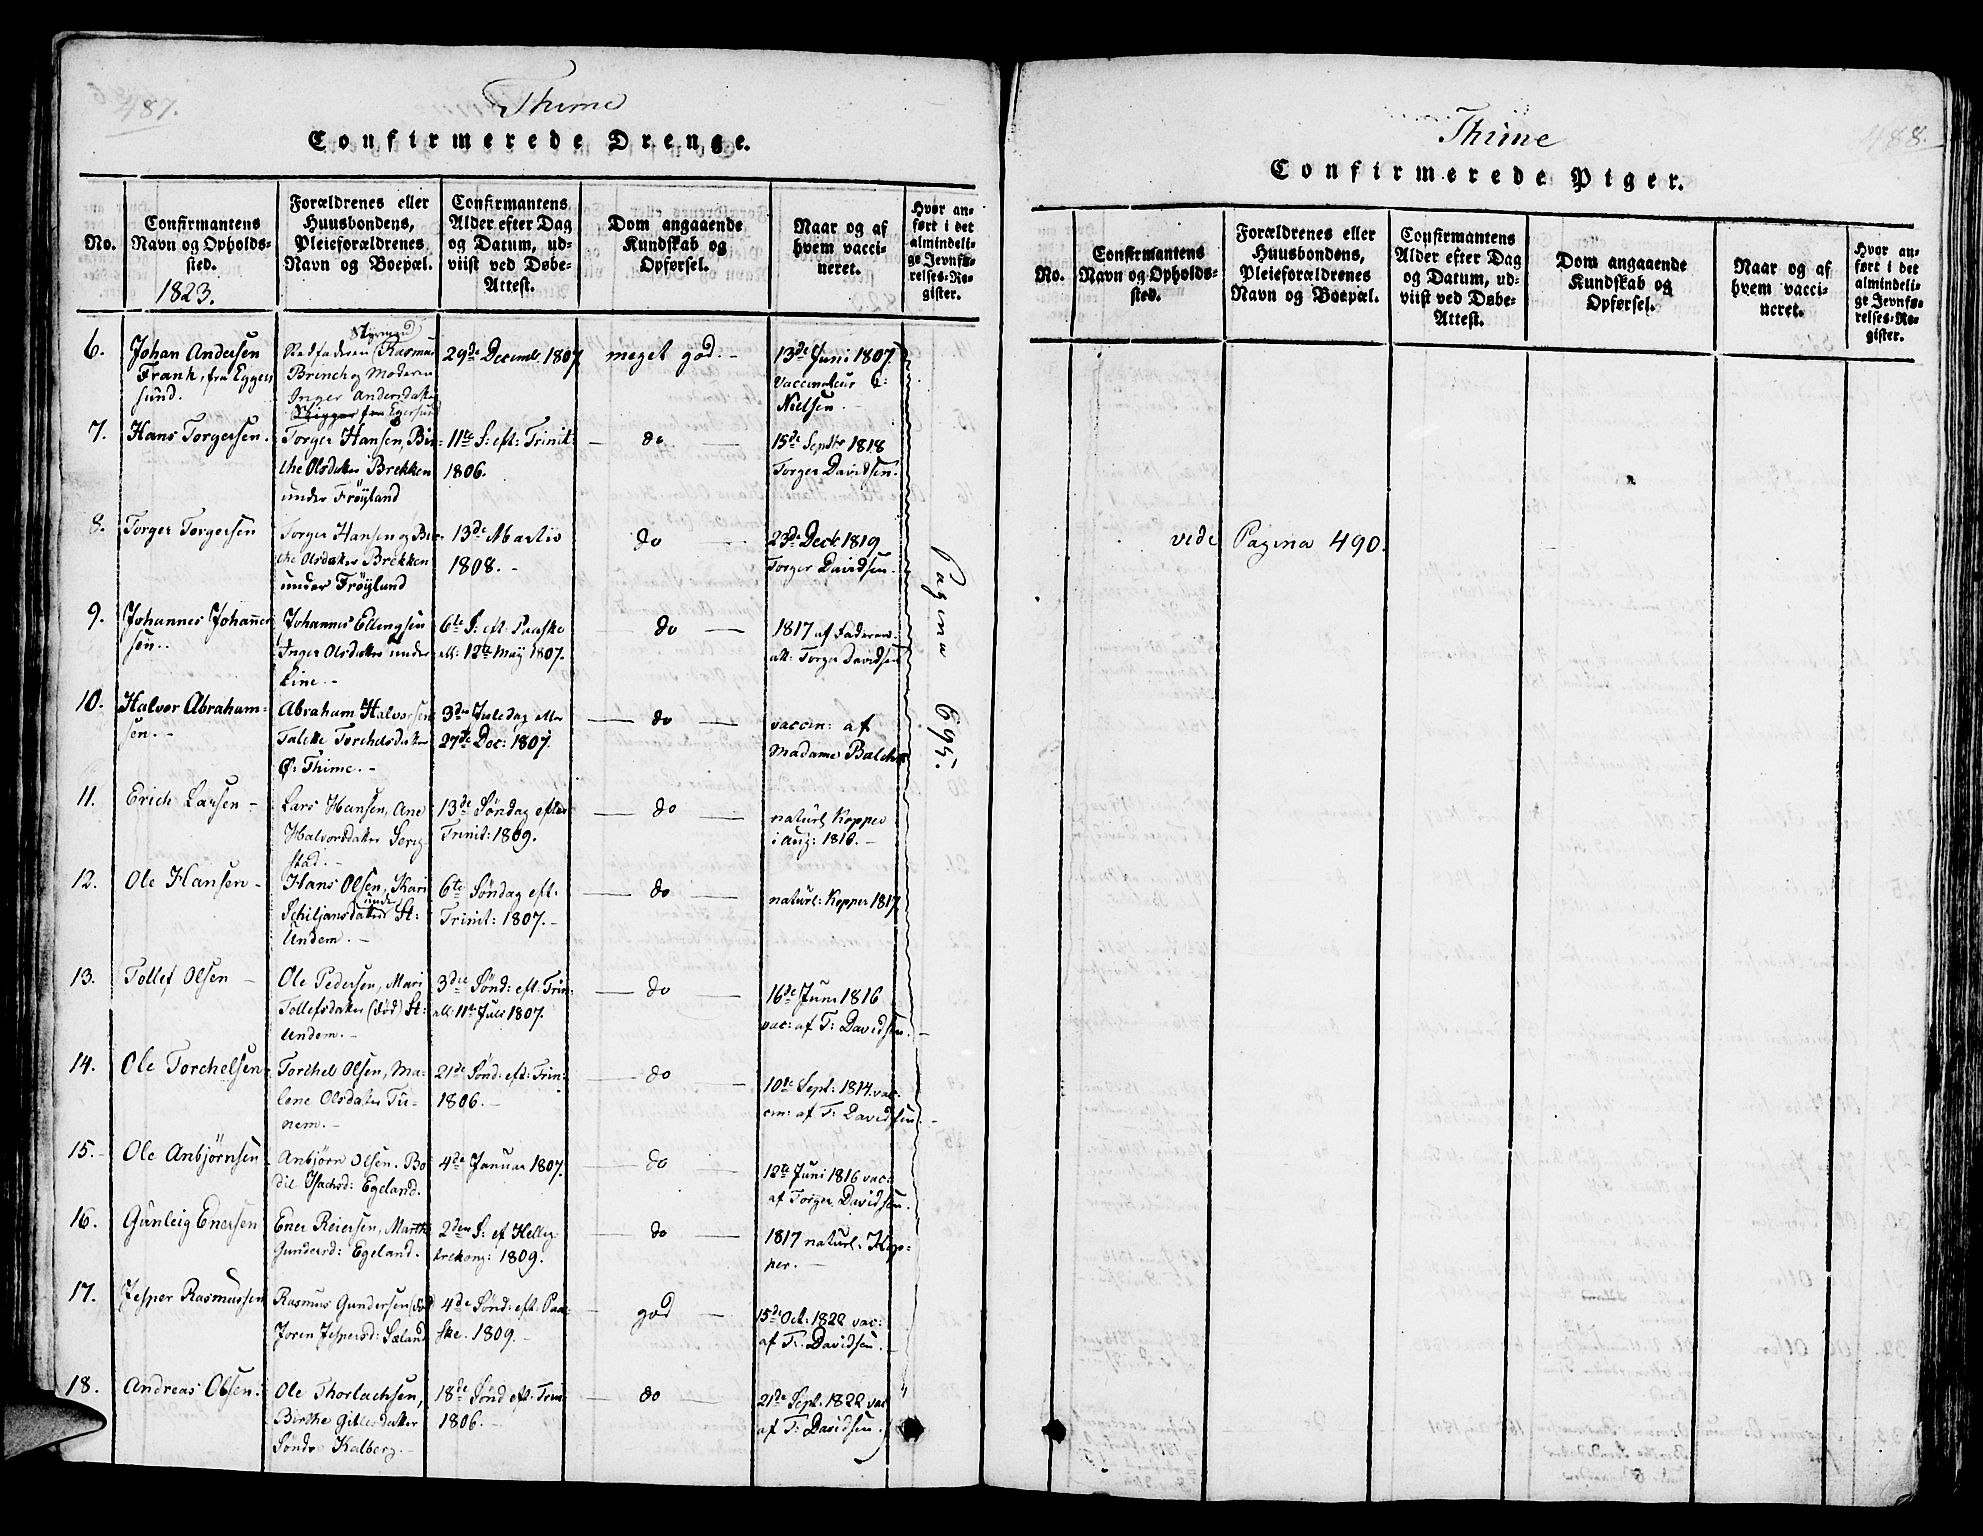 487.
Thime
Confirmerede Drenge.
No.
Confirmantens
Navn og Opholds-
sted.
1823.
Forældrenes eller
Huusbondens,
Pleieforældrenes
Navn og Boepæl.
Confirmantens
Alder efter Dag
og Datum, ud-
viist ved Døbe-
Attest.
Dom angaaende
Kundskab og
Opførsel.
Naar og af
hvem vacci-
neret.
Hvor an-
ført i det
almindeli-
ge Jevnfø-
relses-Re-
gister.
6.
Johan Andersen
Frank, fra Egger-
sund.
Styrmand
Stedfaderen (Rasmus
Brinch og Moderen
Inger Andersdatter
fra Egersund
29de Decemb 1807
meget god. -
13de Juni 1807.
Vaccinateur
Nielsen.
7.
Hans Torgersen.
Torger Hansen, Bir-
the Olsdatter Brekken
under Frøyland
11te S: eft: Trinit:
1806.
do
15de Septbr 1818
Torger Davidsen.
8.
Torger Torgersen
Torger Hansen og Bir-
the Olsdatter Brekken
under Frøylund
13de Martis
1808. -
do
23de Decb 1819
Torger Davidsen.
9.
Johannes Johannes
sen..
Johannes Ellingsen
Inger Olsdatter under
Line. -
6te S: eft: Paaske
all: 12te May 1807.
do
1817 af Faderen
all: Torger Davidsen
10.
Halvor Abraham-
sen. -
Abraham Halvorsen
Talette Torchelsdatter
Ø: Thime. -
3die Juledag eller
27de Dec: 1807.
do
vaccin: af
Madame Balchen
11.
Erich Larsen -
Lars Hansen, Ane
Halvorsdatter Serig-
stad. -
13de Søndag efter
Trinit: 1809.
do
naturl Kopper
i Aug: 1816. -
12.
Ole Hansen -
Hans Olsen, Kari
under
Schiljansdatter St:
Undem. -
6te Søndag eft:
Trinit: 1807. -
do
naturl: Kopper 1817
13.
Tollef Olsen -
Ole Pedersen, Mari
Tollefsdatter (Død) St:
Undem. -
3die Sønd: eft: Trin:
all: 11te Juli 1807.
do
16de Juni 1816
vac: af T: Davidsen.
14.
Ole Torchelsen
Torchel Olsen, Ma-
lene Olsdatter Tu-
nem. -
21de Sønd: eft: Trin:
1806. -
do
10de Sept: 1814 vac-
cin: af T: Davidsen.
15.
Ole Anbjørnsen
Anbjørn Olsen. Bo
dil Isachsd: Egeland.
4de Januar 1807.
do
12te Juni 1816 vac:
af Torger Davidsen.
16.
Gunleig Enersen
Ener Reiersen, Marthe
Gundersd: Egeland.
2den S: ef Hellig
trekong: 1809.
do
1817 naturl: Kop-
per. -
17.
Jesper Rasmussen
Rasmus Gundersen (Død
Joren Jespersd: Sæland
4de Sønd: eft: Paa-
ske. 1809. -
god
15de Oct: 1822 vac:
af T: Davidsen. -
18.
Andreas Olsen.
Ole Thorlachsen,
Birthe Gitlesdatter
Søndr Kalberg. -
18de Sønd eft: Trin:
1806. -
do
21de Sept. 1822 vac
af T: Davidsen.
Pagina 695.
488.
Thime
Confirmerede Piger.
No.
Confirmantens
Navn og Opholds-
sted.
Forældrenes eller
Huusbondens,
Pleieforældrenes
Navn og Boepæl.
Confirmantens
Alder efter Dag
og Datum, ud-
viist ved Døbe-
Attest.
Dom angaaende
Kundskab og
Opførsel.
Naar og af
hvem vacci-
neret.
Hvor an-
ført i det
almindeli-
ge Jevnfø-
relses-Re-
gister.
vide Pagina 490.